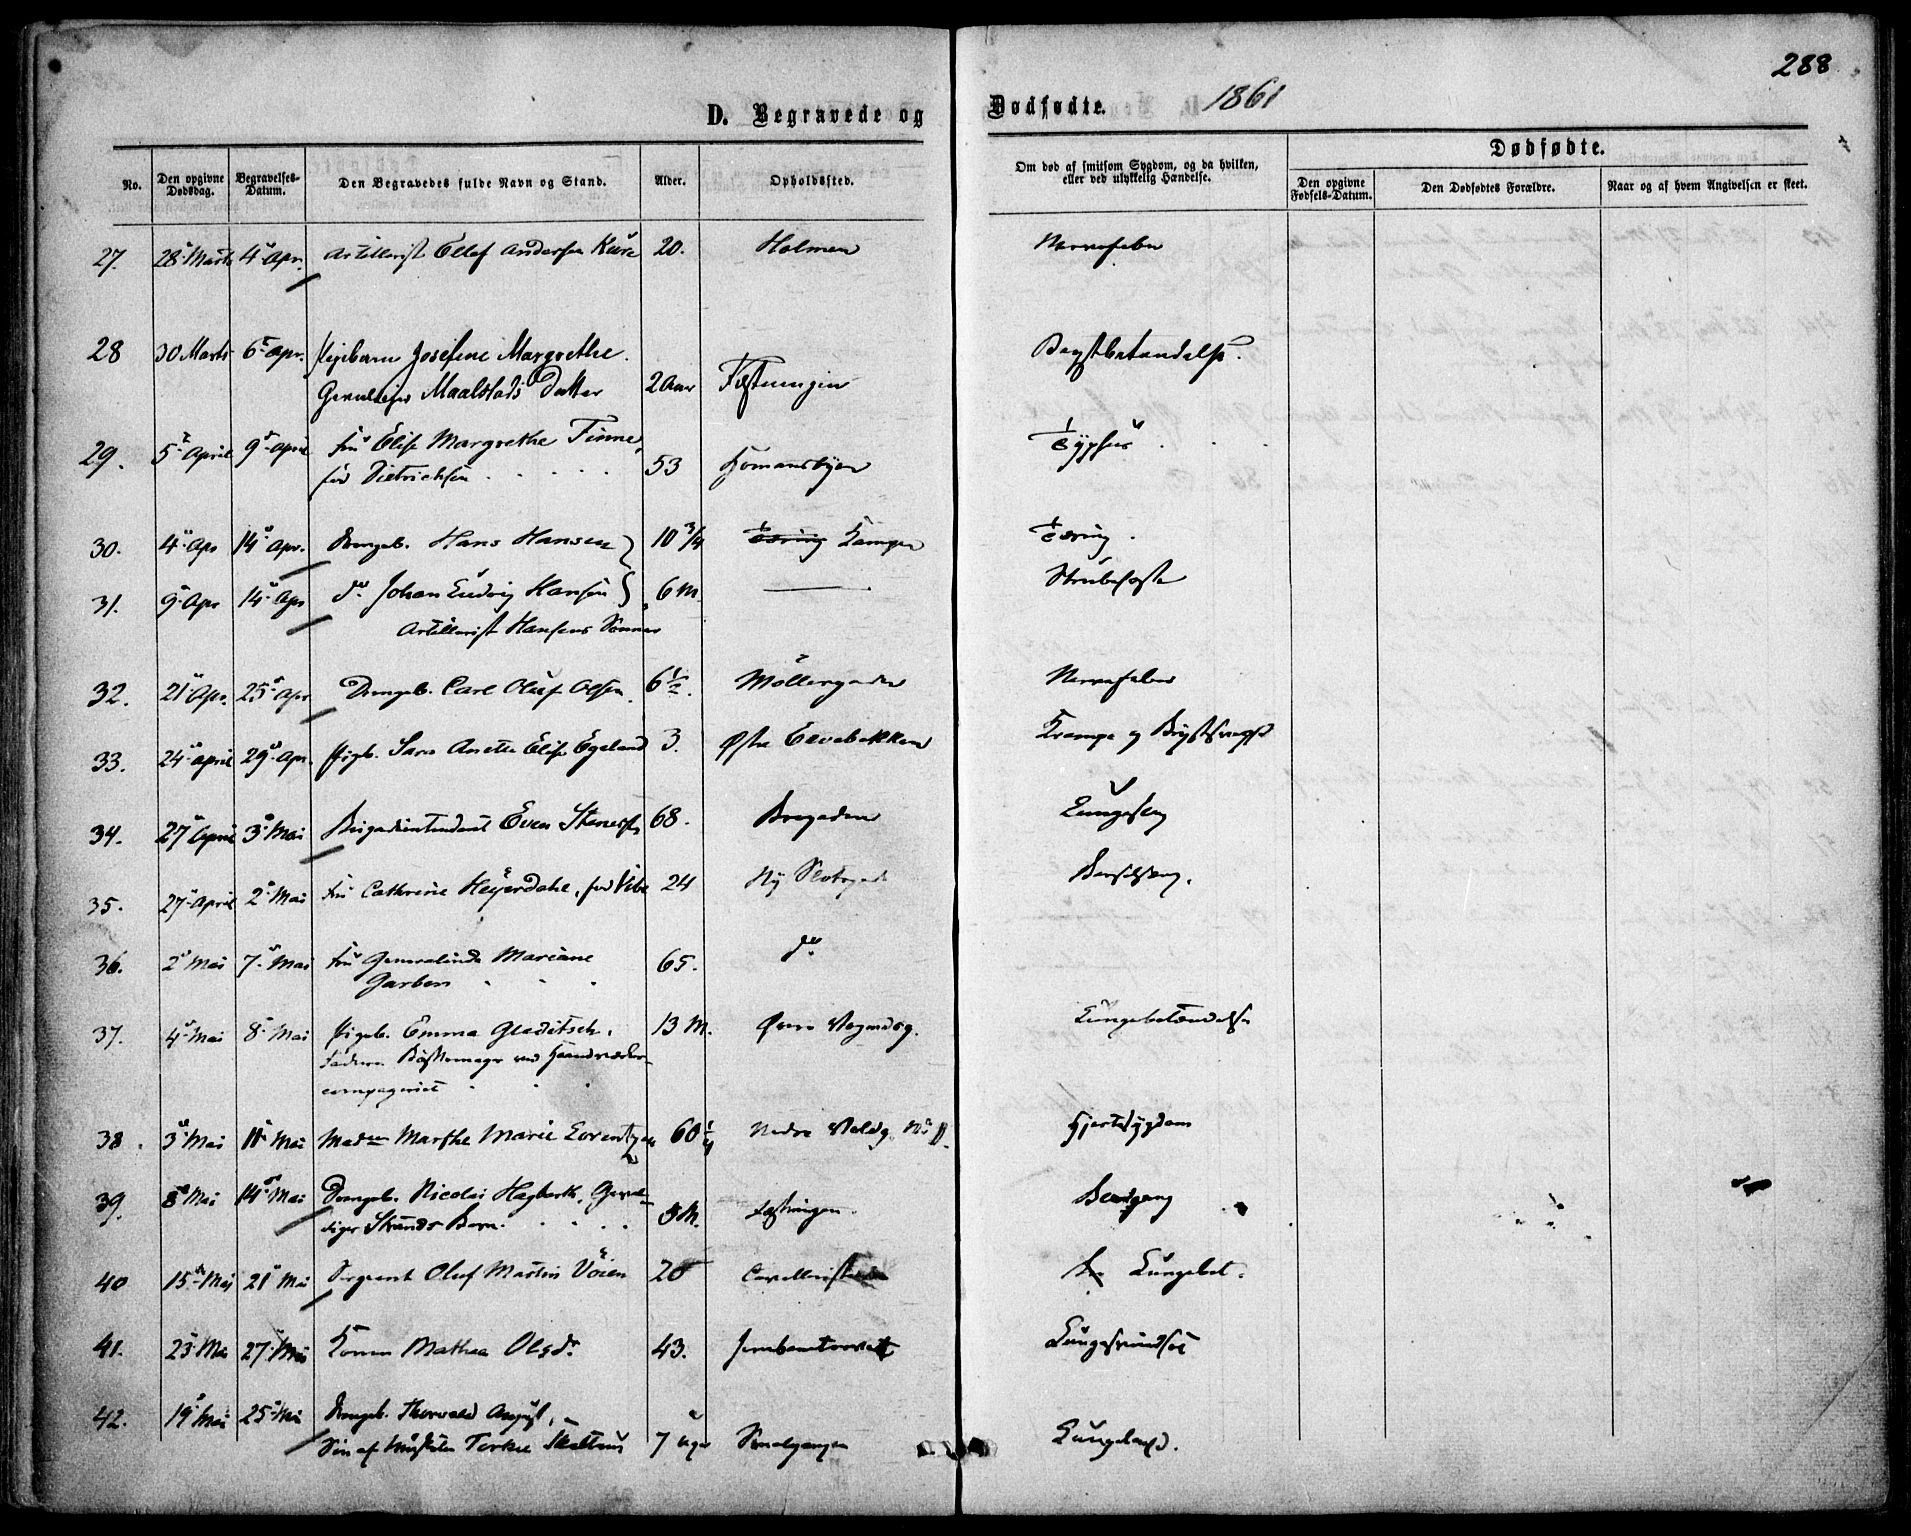 288
D. Begravede og Dødfødte. 1861
Dødfødte.
No. Den opgivne Dødsdag. Begravelses-Datum. Den Begravedes fulde Navn og Stand. Alder. Opholdssted. Om død af smitsom Sygdom, og da hvilken, eller ved ulykkelig Hændelse. Den opgivne Fødsels-Datum. Den Dødfødtes Forældre. Naar og af hvem Angivelsen er skeet.
27. 28 Marts 4 Apr. Artillerist Ellef Andersen Kure 20. Holmen Nervefeber
28 30 Marts 6 Apr. Pigebarn Josefine Margrethe
Maalstads Datter 2 Aar Fæstningen Brystbetændelse.
29. 5 April 9 April Fru Elise Margrethe Finne,
fød Dietrichsen 53 Homansbyen Typhus
30. 4 Apr 14 Apr. Drengeb. Hans Hansen 10 3/4 Tæring Kampen Tæring.
31. 9 Apr 14 Apr do Johan Ludvig Hansen 6 M. — Strubehoste
Artillerist Hansens Sønner
32. 21 Apr. 25 Apr Drengeb. Carl Oluf Olsen. 6 1/2. Møllergaden Nervefeber
33. 24 April 29 Apr. Pigb. Sara Anette Elise Egeland 3. Østre Elvebakken Krampe og Brystsvagh
34. 27 April 3 Mai Brigadeintendant Even Stenersen 68. Brogaden Lungeslag
35. 27 April 2 Mai Fru Cathrine Heyerdahl, fød Vibe 24 Ny Slotsgade Barselseng.
36. 2 Mai 7 Mai Fru Generalinde Mariane
Garben 65. do
37. 4 Mai 8 Mai Pigeb. Emma Gladitsch. 13 M. Øvre Vognmdg. Lungebetændelse
Faderen Bøssemager ved Haandværker-
compagniet
38. 3 Mai 11 Mai Mad. Marthe Marie Lorentzen 60 1/4 Nedre Voldg. No Hjertesygdom
39. 8 Mai 14 Mai Drengeb. Nicolai Hagbarth, Geval-
diger Strands Barn. M. Fæstningen.
40 15 Mai 21 Mai Sergeant Oluf Martin Vøien 20 Lungebet.
41. 23 Mai 27 Mai Konen Mathea Olsdr 43. Jernbanetorvet Lungesvindsot
42. 19 Mai 25 Mai Drengeb. Thorvald August,
Søn af Torkel 7 Uger Smalgangen